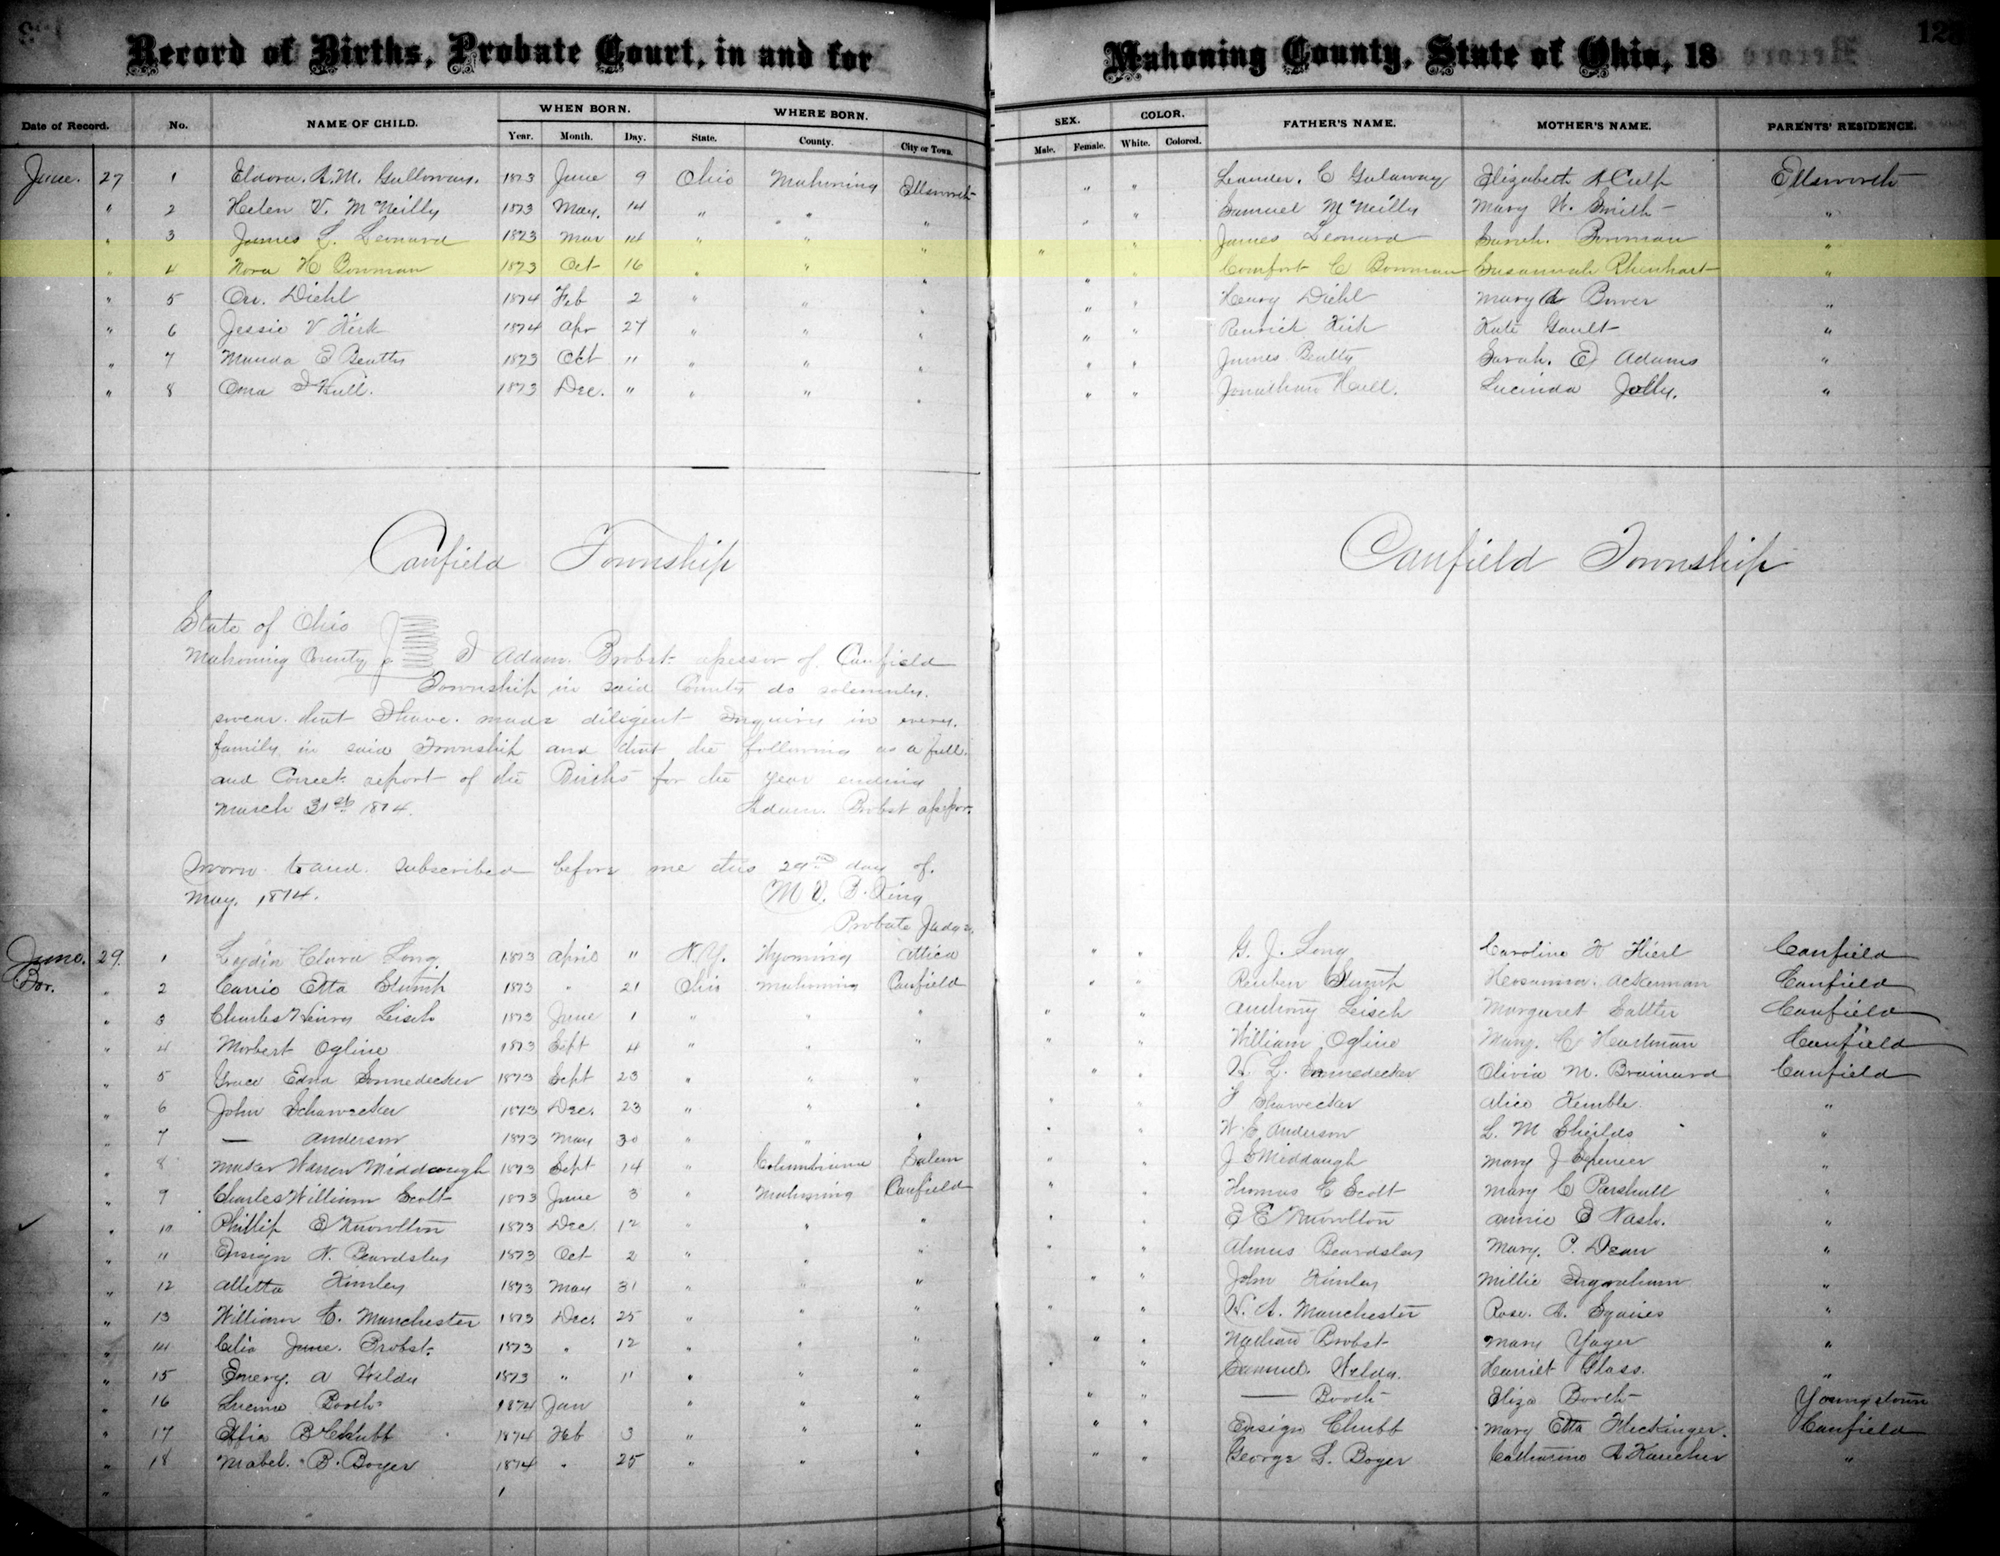 Record of Births, Probate Court, in and for Mahoning County, State of Ohio, 18
Date of Record. No. NAME OF CHILD. WHEN BORN. WHERE BORN. SEX. COLOR. FATHER'S NAME. MOTHER'S NAME. PARENTS' RESIDENCE.
Year. Month. Day. State. County. City or Town. Male. Female. White. Colored.
June. 27 1 Eldora. A. M. Galloway. 1873 June 9 Ohio Mahoning Ellsworth " " Leander. C Galaway Elizabeth A Culp Ellsworth
" 2 Helen V. McNeilly 1873 May. 14 " " " " " Samuel McNeilly Mary W. Smith "
" 3 James L. Leonard 1873 Mar 14 " " " " " James Leonard Sarah. Bowman "
" 4 Nora H Bowman 1873 Oct 16 " " " " " Comfort C Bowman Susannah Rhenhart "
" 5 Diehl 1874 Feb 2 " " " " " Henry Diehl Mary A Bower "
" 6 Jessie V Kirk 1874 Apr 27 " " " " " Renrick Kirk Kate Gault "
" 7 Manda E Beatty 1873 Oct 11 " " " " " James Beatty Sarah. E Adams "
" 8 Oma 1873 Dec. " " " " " " Jonathan Lucinda Jolly. "
Canfield Township Canfield Township
State of Ohio
Mahoning County I Adam. Probst assessor of Canfield
Township in said County do solemnly.
swear. that I have. made diligent Inquiry in every.
family. in said Township and that the following is a full.
and Correct report of the Births for the year ending
March 31st 1874. Adam. Probst assessor.
Sworn to and. subscribed before me this 29th day of.
May. 1874. M V. B. King
Probate Judge.
June. 29. 1 Lydia Clara Long 1873 April 11 N.Y. Wyoming Attica " " G. J. Long Caroline Canfield
" 2 Carrie Etta Stump 1873 " 21 Ohio Mahoning Canfield " " Reuben Stump Ackerman Canfield
" 3 Charles Henry Leisch 1873 June 1 " " " " " Anthony Leisch Margaret Canfield
" 4 Norbert Ogline 1873 Sept 4 " " " " " William Ogline Mary. C Hartman Canfield
" 5 Grace Edna Sonnedecker 1873 Sept 23 " " " " " W L. Sonnedecker Olivia M. Brainard Canfield
" 6 John Schawecker 1873 Dec. 23 " " " " " Shawecker Alice Kemble. "
" 7 — Anderson 1873 May 30 " " " " " W. C Anderson L. M Shields "
" 8 Warren Middaugh 1873 Sept 14 " Columbiana Salem " " J S Middaugh Mary J Spencer "
" 9 Charles William Scott 1873 June 3 " Mahoning Canfield " " Thomas C Scott Mary C Parshall "
" 10 Phillip E Knowlton 1873 Dec 12 " " " " " E E Knowlton Annie E Nash. "
" 11 Ensign N. Beardsley 1873 Oct 2 " " " " " Almus Beardsley Mary. P. Dean "
" 12 Alletta Kimley 1873 May 31 " " " " " John Kimley Millie Ingraham "
" 13 William C. Manchester 1873 Dec. 25 " " " " " W. A. Manchester Rose. A. Squires "
" 14 Celia June. Probst. 1873 " 12 " " " " " Nathan Probst Mary Yager "
" 15 Emery. A Wilda 1873 " 11 " " " " " Samuel. Wilda. Harriet Glass. "
" 16 Booth 1874 Jan " " " " " — Booth Eliza Booth Youngstown
" 17 Effie B Chubb 1874 Feb 3 " " " " " Ensign Chubb Mary Etta Flickinger. Canfield
" 18 Mabel. B. Boyer 1874 " 25 " " " " " George L. Boyer Catharine A Karcher "